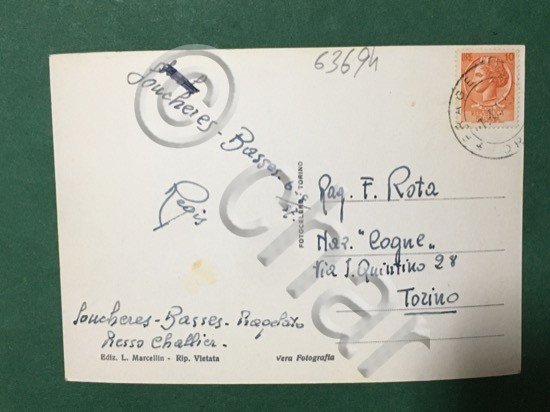 6369h
Soucheres-Basses 6
Regis
FOTOCELERE TORINO
Rag. F. Rota
Naz. "Cogne"
Via S. Quintino 28
Torino
Soucheres-Basses-Pragelato
Presso Challier-
Ediz. L. Marcellin - Rip. Vietata
Vera Fotografia
10
© char